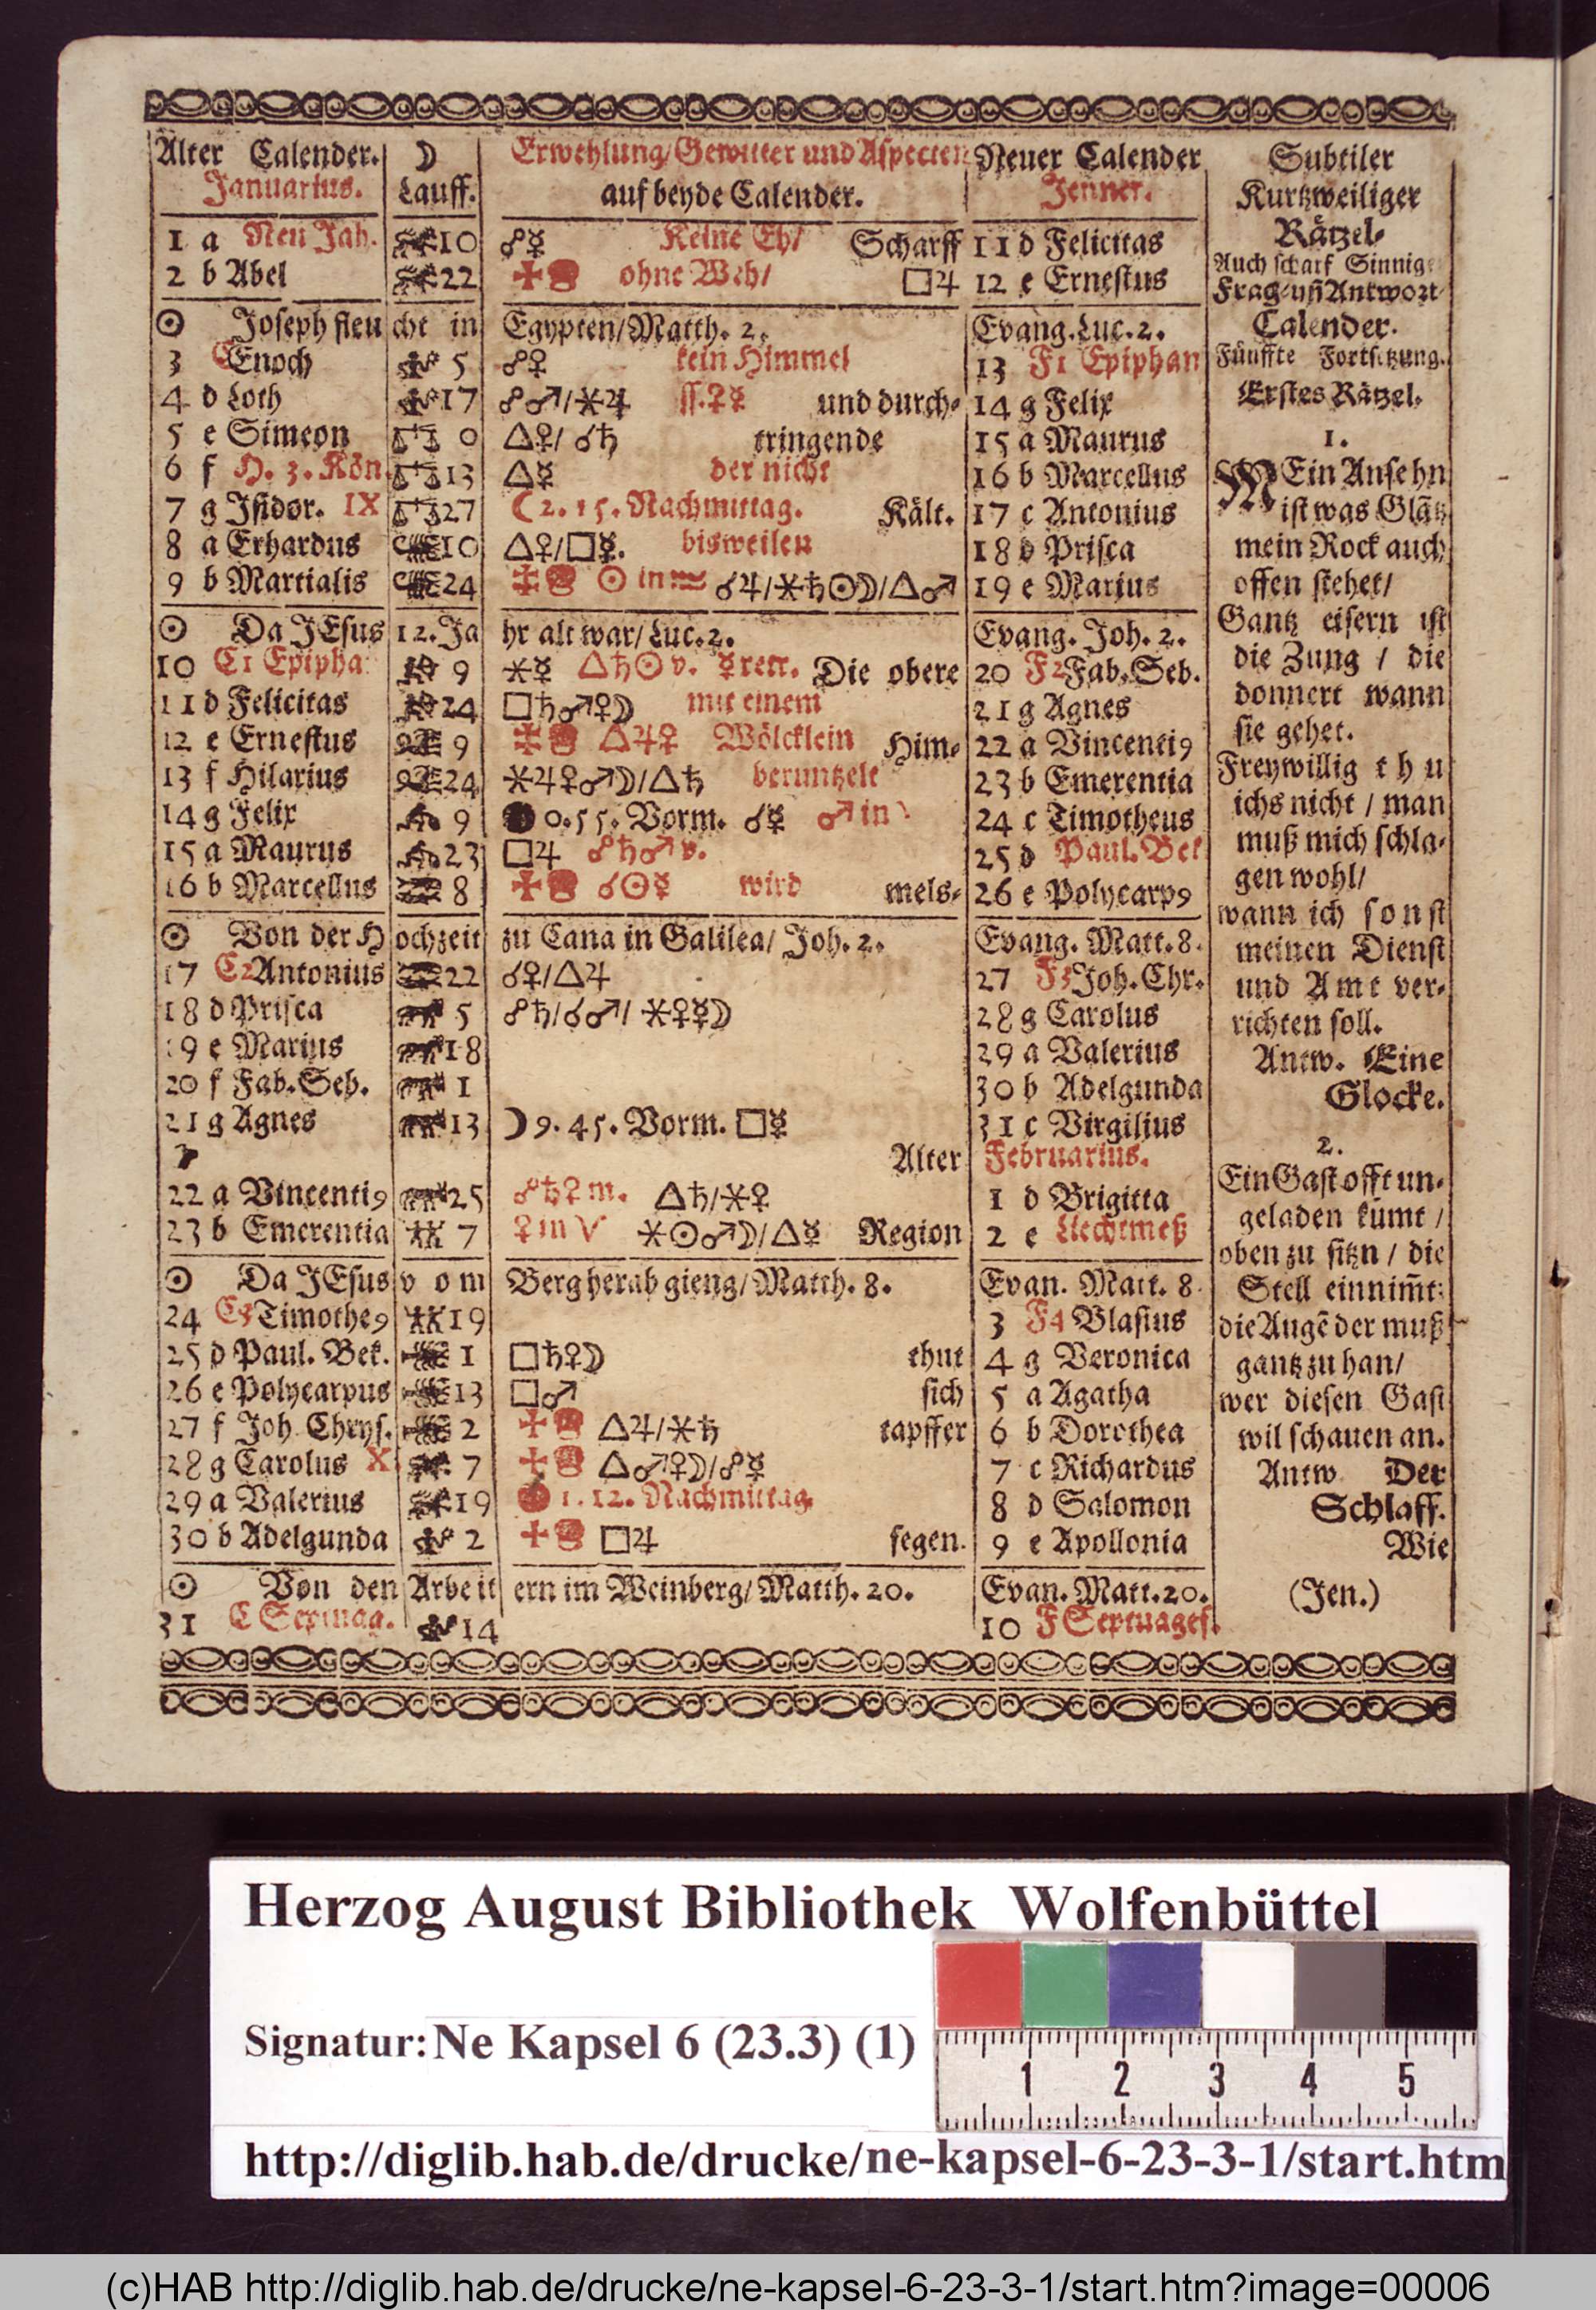 Alter Calender. ☽ Erwehlung/Gewitter und Aspecten Neuer Calender
Januarius. Lauff. auf beyde Calender. Jenner.
1 a Neu Jah. 10 ☍☿ Keine Eh/ Scharff 11 d Felicitas
2 b Abel 22 ohne Weh/ □♃ 12 e Ernestus
☉ Joseph fleucht in Egypten/Matth. 2. Evang. Luc. 2.
3 C Enoch 5 ☍♀ kein Himmel 13 F1 Epiphan
4 d Loth 17 ☍♂/⚹♃ ſſ.♀☿ und durch- 14 g Felix
5 e Simeon 0 △♀/ ☌♄ tringende 15 a Maurus
6 f H. 3. Kön. 13 △☿ der nicht 16 b Marcellus
7 g Isidor. IX 27 ☾ 2. 15. Nachmittag. Kält. 17 c Antonius
8 a Erhardus 10 △♀/□☿. bisweilen 18 d Prisca
9 b Martialis 24 ☉ in ♒ ☌♃/⚹♄☉☽/△♂ 19 e Marius
☉ Da JEsus 12. Jahr alt war/Luc. 2. Evang. Joh. 2.
10 C1 Epipha. 9 ⚹☿ △♄☉ v. ☿ retr. Die obere 20 F2 Fab. Seb.
11 d Felicitas 24 □♄♂♀☽ mit einem 21 g Agnes
12 e Ernestus 9 △♃♀ Wölcklein Him- 22 a Vincenti9
13 f Hilarius 24 ⚹♃♀♂☽/△♄ beruntzelt 23 b Emerentia
14 g Felix 9 ● 0. 55. Vorm. ☌☿ ♂ in 24 c Timotheus
15 a Maurus 23 □♃ ☍♄♂ v. 25 d Paul. Bek
16 b Marcellus 8 ☌☉☿ wird mels- 26 e Polycarp9
☉ Von der Hochzeit zu Cana in Galilea/ Joh. 2. Evang. Matt. 8.
17 C2 Antonius 22 ☌♀/△♃ 27 F3 Joh. Chr.
18 d Prisca 5 ☍♄/☌♂/ ⚹♀☿☽ 28 g Carolus
19 e Marius 18 29 a Valerius
20 f Fab. Seb. 1 30 b Adelgunda
21 g Agnes 13 ☽ 9. 45. Vorm. □☿ 31 c Virgilius
Alter Februarius.
22 a Vincenti9 25 ☍♄♀ m. △♄/⚹♀ 1 d Brigitta
23 b Emerentia 7 ♀ in ♈ ⚹☉♂☽/△☿ Region 2 e Liechtmeß
☉ Da JEsus vom Berg herab gieng/Matth. 8. Evan. Matt. 8.
24 C3 Timothe9 19 3 F4 Blasius
25 d Paul. Bek. 1 □♄♀☽ thut 4 g Veronica
26 e Polycarpus 13 □♂ sich 5 a Agatha
27 f Joh. Chrys. 2 △♃/⚹♄ tapffer 6 b Dorothea
28 g Carolus X 7 △♂♀☽/☍☿ 7 c Richardus
29 a Valerius 19 1. 12. Nachmittag. 8 d Salomon
30 b Adelgunda 2 □♃ fegen. 9 e Apollonia
☉ Von den Arbeitern im Weinberg/Matth. 20. Evan. Matt. 20.
31 C Septuag. 14 10 F Septuages.
Subtiler
Kurtzweiliger
Rätzel-
Auch scharf Sinnige
Frag-uñ Antwort-
Calender.
Fünffte Fortsetzung.
Erstes Rätzel.
1.
MEin Ansehn
ist was Glätz
mein Rock auch
offen stehet/
Gantz eisern ist
die Zung / die
donnert wann
sie gehet.
Freywillig thu
ichs nicht / man
muß mich schla-
gen wohl/
wann ich sonst
meinen Dienst
und Amt ver-
richten soll.
Antw. Eine
Glocke.
2.
Ein Gast offt un-
geladen kümt /
oben zu sitzn / die
Stell einnim̃t:
die Augẽ der muß
gantz zu han/
wer diesen Gast
wil schauen an.
Antw. Der
Schlaff.
Wie
(Jen.)
Herzog August Bibliothek Wolfenbüttel
Signatur: Ne Kapsel 6 (23.3) (1)
1 2 3 4 5
http://diglib.hab.de/drucke/ne-kapsel-6-23-3-1/start.htm
(c)HAB http://diglib.hab.de/drucke/ne-kapsel-6-23-3-1/start.htm?image=00006